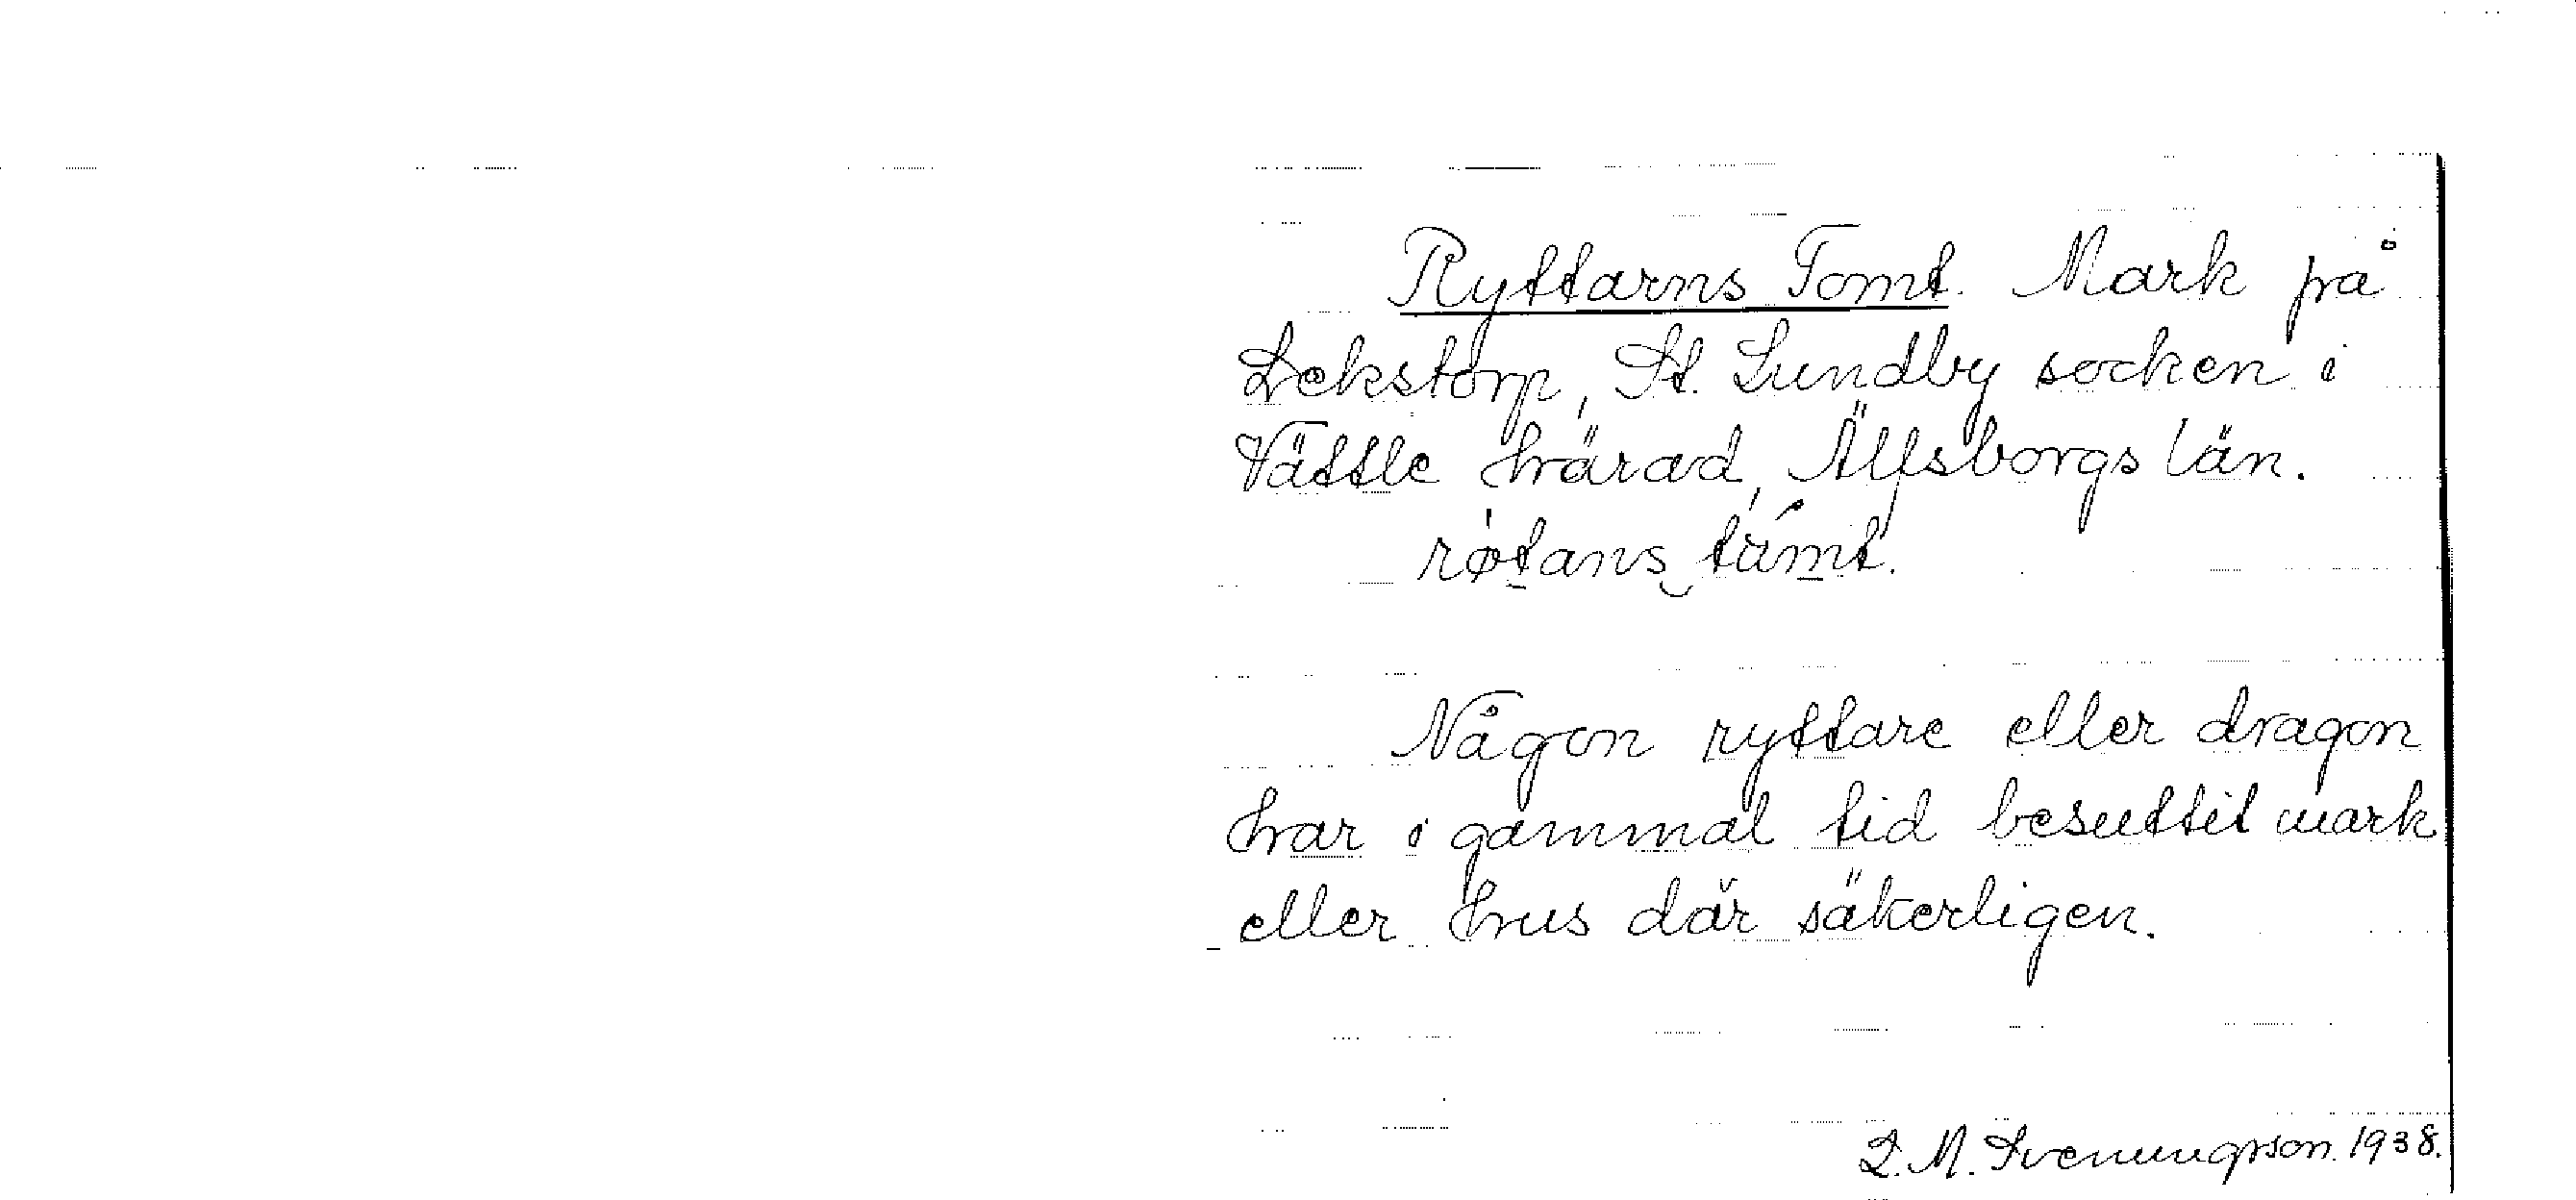 Ryttarns Tomt. Mark på
Lekstorp, St. Lundby socken i
Vättle härad, Älfsborgs län.
rø̀tans tám̄t.
Någon ryttare eller dragon
har i gammal tid besuttit mark
eller hus där säkerligen.
L. M. Svenungsson. 1938.